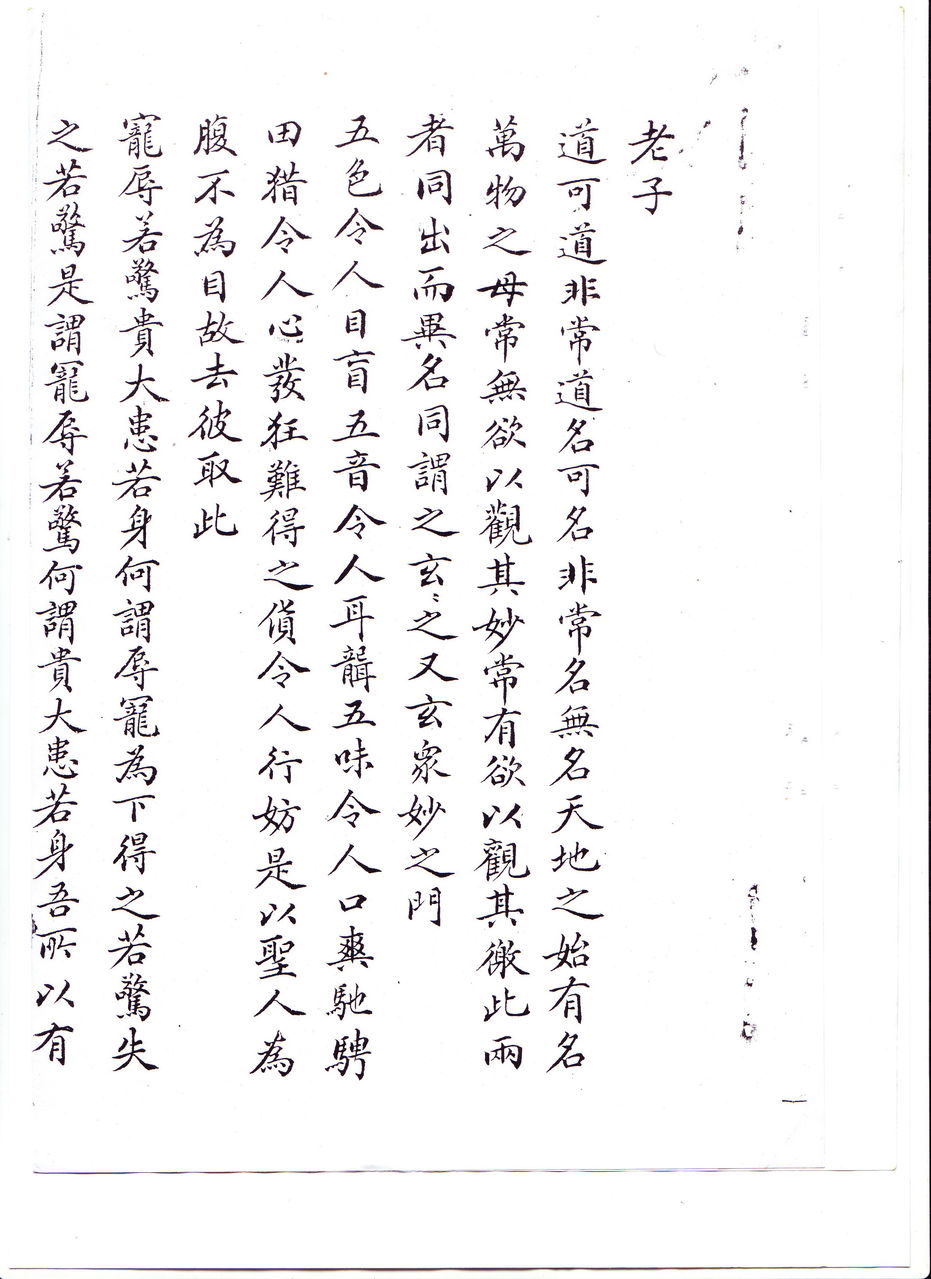 老子
道可道非常道名可名非常名無名天地之始有名
萬物之母常無欲以觀其妙常有欲以觀其徼此兩
者同出而異名同謂之玄〻之又玄衆妙之門
五色令人目盲五音令人耳聾五味令人口爽馳騁
田猎令人心發狂難得之貨令人行妨是以聖人為
腹不為目故去彼取此
寵辱若驚貴大患若身何謂辱寵為下得之若驚失
之若驚是謂寵辱若驚何謂貴大患若身吾所以有
一